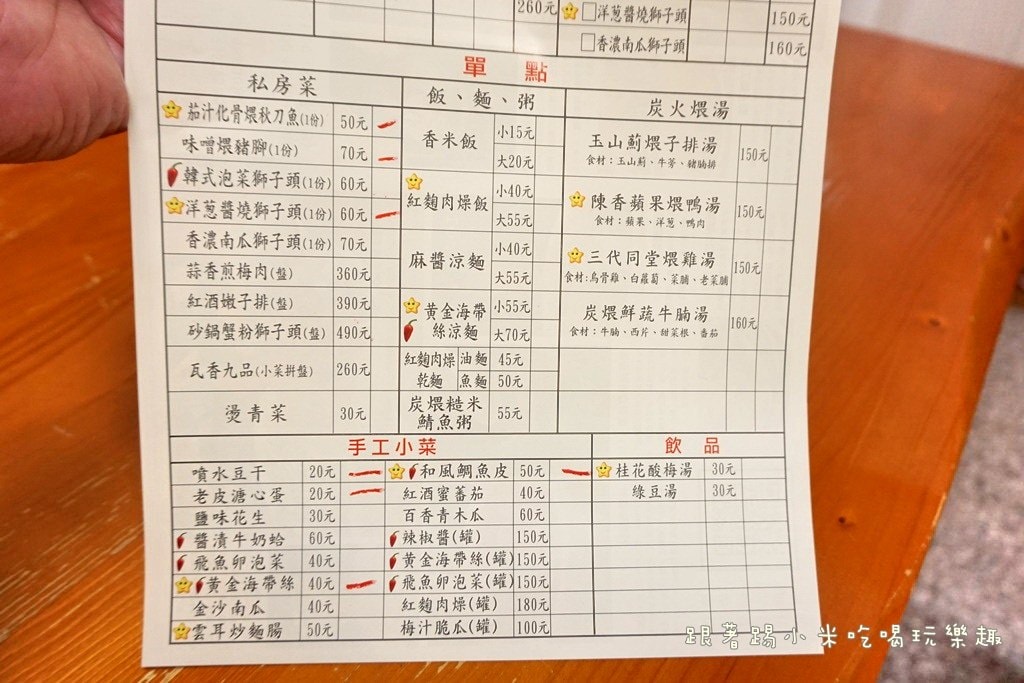 260元 洋蔥醬燒獅子頭 150元
香濃南瓜獅子頭 160元
單 點
私房菜
茄汁化骨煨秋刀魚(1份) 50元
味噌煨豬腳(1份) 70元
韓式泡菜獅子頭(1份) 60元
洋蔥醬燒獅子頭(1份) 60元
香濃南瓜獅子頭(1份) 70元
蒜香煎梅肉(盤) 360元
紅酒嫩子排(盤) 390元
砂鍋蟹粉獅子頭(盤) 490元
瓦香九品(小菜拼盤) 260元
燙青菜 30元
飯、麵、粥
香米飯 小15元
大20元
紅麴肉燥飯 小40元
大55元
麻醬涼麵 小40元
大55元
黃金海帶 小55元
絲涼麵 大70元
紅麴肉燥 油麵 45元
乾麵 魚麵 50元
炭煨糙米
鯖魚粥 55元
炭火煨湯
玉山薊煨子排湯 150元
食材：玉山薊、牛蒡、豬腩排
陳香蘋果煨鴨湯 150元
食材：蘋果、洋蔥、鴨肉
三代同堂煨雞湯 150元
食材:烏骨雞、白蘿蔔、菜脯、老菜脯
炭煨鮮蔬牛腩湯 160元
食材：牛腩、西芹、甜菜根、番茄
手工小菜
噴水豆干 20元
老皮溏心蛋 20元
鹽味花生 30元
醬漬牛奶蛤 60元
飛魚卵泡菜 40元
黃金海帶絲 40元
金沙南瓜 40元
雲耳炒麵腸 50元
和風鯛魚皮 50元
紅酒蜜蕃茄 40元
百香青木瓜 60元
辣椒醬(罐) 150元
黃金海帶絲(罐) 150元
飛魚卵泡菜(罐) 150元
紅麴肉燥(罐) 180元
梅汁脆瓜(罐) 100元
飲 品
桂花酸梅湯 30元
綠豆湯 30元
跟著踢小米吃喝玩樂趣